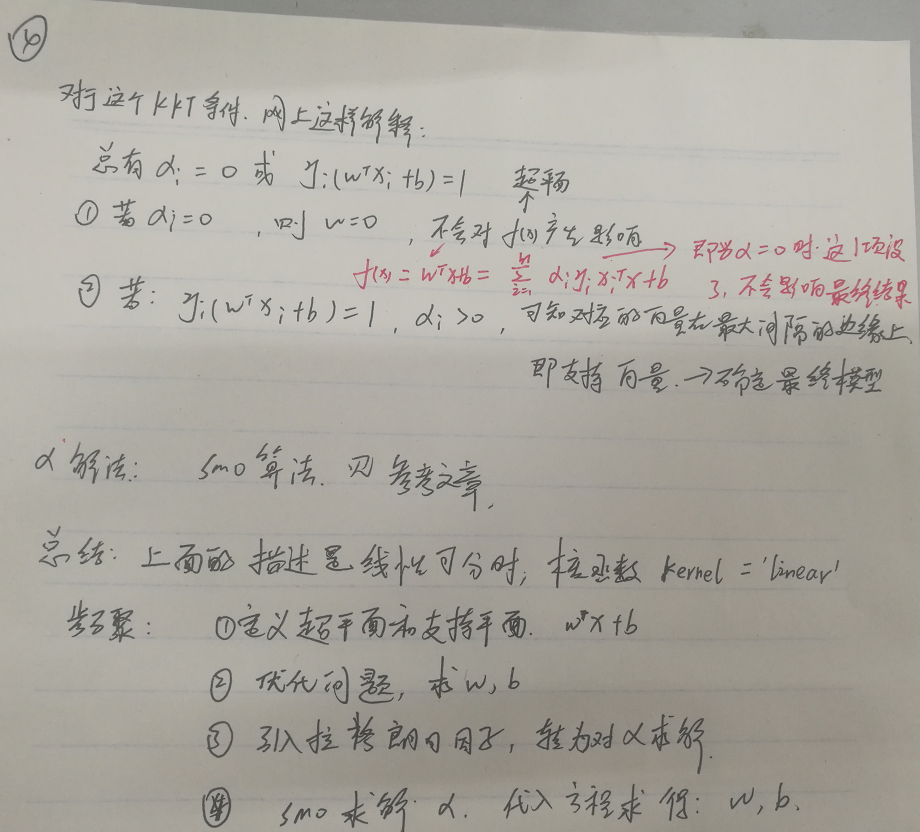 ④
对于这个KKT条件. 网上这样解释:
总有 αi = 0 或 yi(wᵀxi+b)=1 超平面
① 若 αi=0 , 则 w=0 , 不会对 f(x) 产生影响
f(x) = wᵀx+b = Σ(i=1,m) αi yi xiᵀx+b → 即当α=0时. 这1项没
了, 不会影响最终结果
② 若: yi(wᵀxi+b)=1 , αi>0 , 可知对应的向量在最大间隔的边缘上,
即支持向量. →确定最终模型
α 解法: smo 算法. 见参考文章.
总结: 上面的描述是线性可分时, 核函数 kernel = 'linear'
步骤: ①定义超平面和支持平面. wᵀx+b
② 优化问题, 求 w, b
③ 引入拉格朗日因子, 转为对α求解.
④ smo 求解 α. 代入方程求得: w, b.